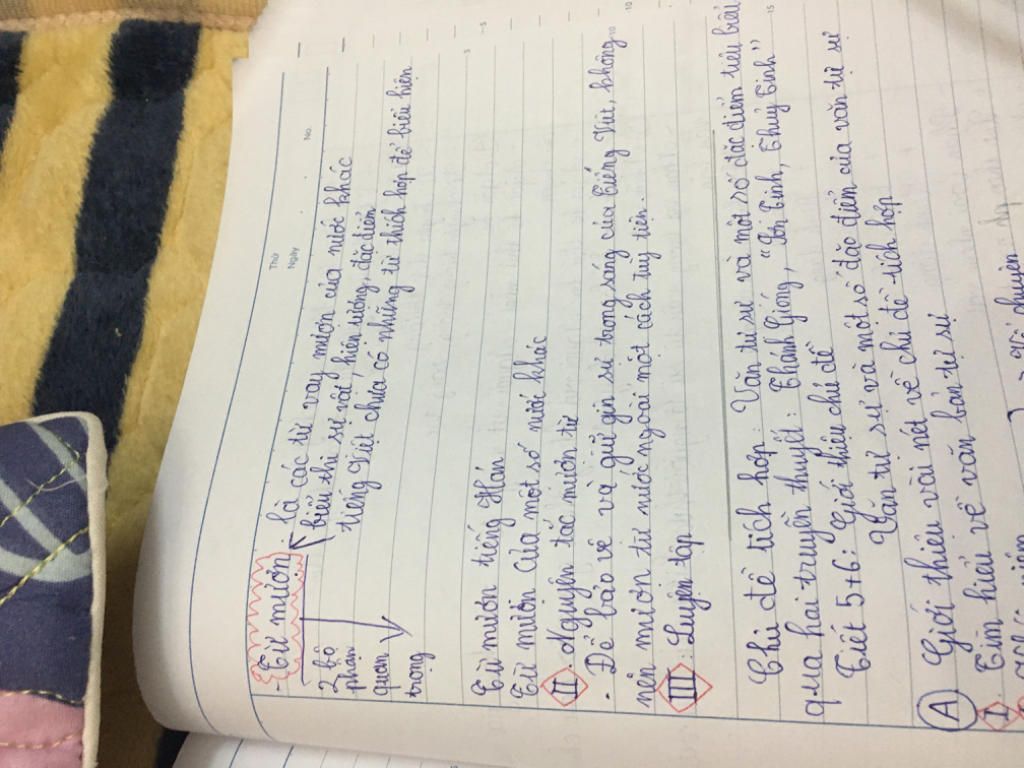 Thứ
Ngày
No.
- Từ mượn: là các từ vay mượn của nước khác
biểu thị sự vật, hiện tượng, đặc điểm
tiếng Việt chưa có những từ thích hợp để biểu hiện
2 bộ
phận
quan
trọng
Từ mượn tiếng Hán
Từ mượn của một số nước khác
II. Nguyên tắc mượn từ
- Để bảo vệ và giữ gìn sự trong sáng của tiếng Việt, không
nên mượn từ nước ngoài một cách tuỳ tiện.
III. Luyện tập
Chủ đề tích hợp: Văn tự sự và một số đặc điểm tiêu biểu
qua hai truyền thuyết: Thánh Gióng, "Sơn Tinh, Thuỷ Tinh"
Tiết 5+6: Giới thiệu chủ đề
Văn tự sự và một số đặc điểm của văn tự sự
A Giới thiệu vài nét về chủ đề tích hợp
I. Tìm hiểu về văn bản tự sự